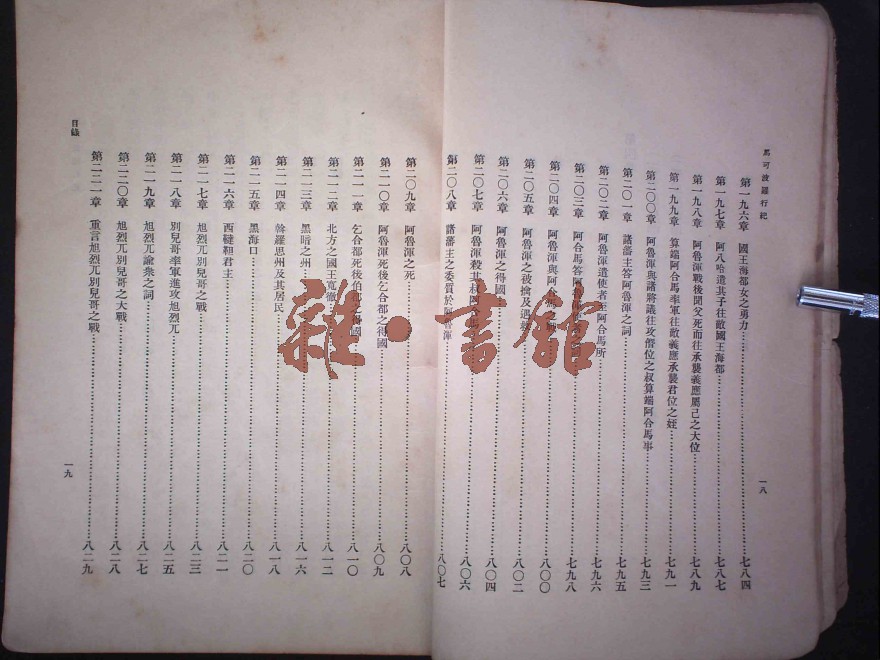 馬可波羅行紀
第一九六章 國王海都女之勇力……七八四
第一九七章 阿八哈遣其子往敵國王海都……七八七
第一九八章 阿魯渾戰後聞父死而往承襲義應屬己之大位……七八九
第一九九章 算端阿合馬率軍往敵義應承襲君位之姪……七九一
第二〇〇章 阿魯渾與諸將議往攻僭位之叔算端阿合馬事……七九三
第二〇一章 諸藩主答阿魯渾之詞……七九五
第二〇二章 阿魯渾遣使者至阿合馬所……七九六
第二〇三章 阿合馬答阿魯渾……七九八
第二〇四章 阿魯渾與阿合馬……戰……八〇〇
第二〇五章 阿魯渾之被擒及遇……八〇二
第二〇六章 阿魯渾之得國……八〇四
第二〇七章 阿魯渾殺其叔……八〇六
第二〇八章 諸藩主之委質於阿魯渾……八〇七
一八
第二〇九章 阿魯渾之死……八〇八
第二一〇章 阿魯渾死後乞合都之得國……八〇九
第二一一章 乞合都死後伯都之得國……八一〇
第二一二章 北方之國王寬徹……八一二
第二一三章 黑暗之州……八一六
第二一四章 斡羅思州及其居民……八一八
第二一五章 黑海口……八二〇
第二一六章 西韃靼君主……八二一
第二一七章 旭烈兀別兒哥之戰……八二三
第二一八章 別兒哥率軍進攻旭烈兀……八二五
第二一九章 旭烈兀諭衆之詞……八二七
第二二〇章 旭烈兀別兒哥之大戰……八二八
第二二一章 重言旭烈兀別兒哥之戰……八二九
目錄
一九
雜·書館